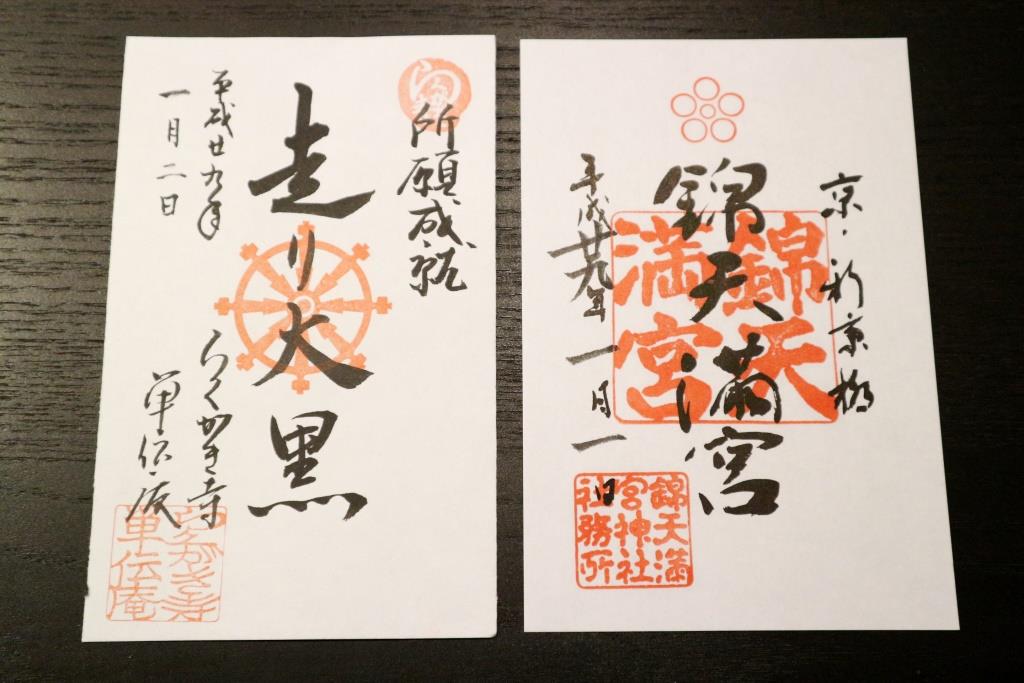 所願成就
走り大黒
平成廿九年
一月二日
らくがき寺
単伝庵
らくがき寺
単伝庵
京・新京極
錦天満宮
平成廿九年一月一日
錦天
満宮
錦天満
宮神社
社務所